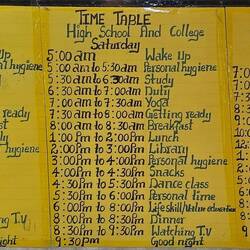 TIME TABLE
High School And College
Saturday
5:00 am Wake Up
5:00 am to 5:30am Personal hygiene
5:30 am to 6:30am Study
6:30 am to 7:00am Duty
7:00 am to Yoga
am to 8:00am Getting ready
8:00 am to Breakfast
Pm to 1:00Pm Lunch
1:00 Pm to 3:00Pm Library
3:00 Pm to 4:00Pm Personal hygiene
4:00 Pm to 4:30Pm Snacks
4:30 Pm to 5:30Pm Dance class
5:30 Pm to 6:00Pm Personal time
6:00 Pm to 8:00Pm Life skill/Value education
8:00 Pm to 8:30Pm Dinner
8:30 Pm to 9:30Pm Watching T.V
9:30 pm Good night